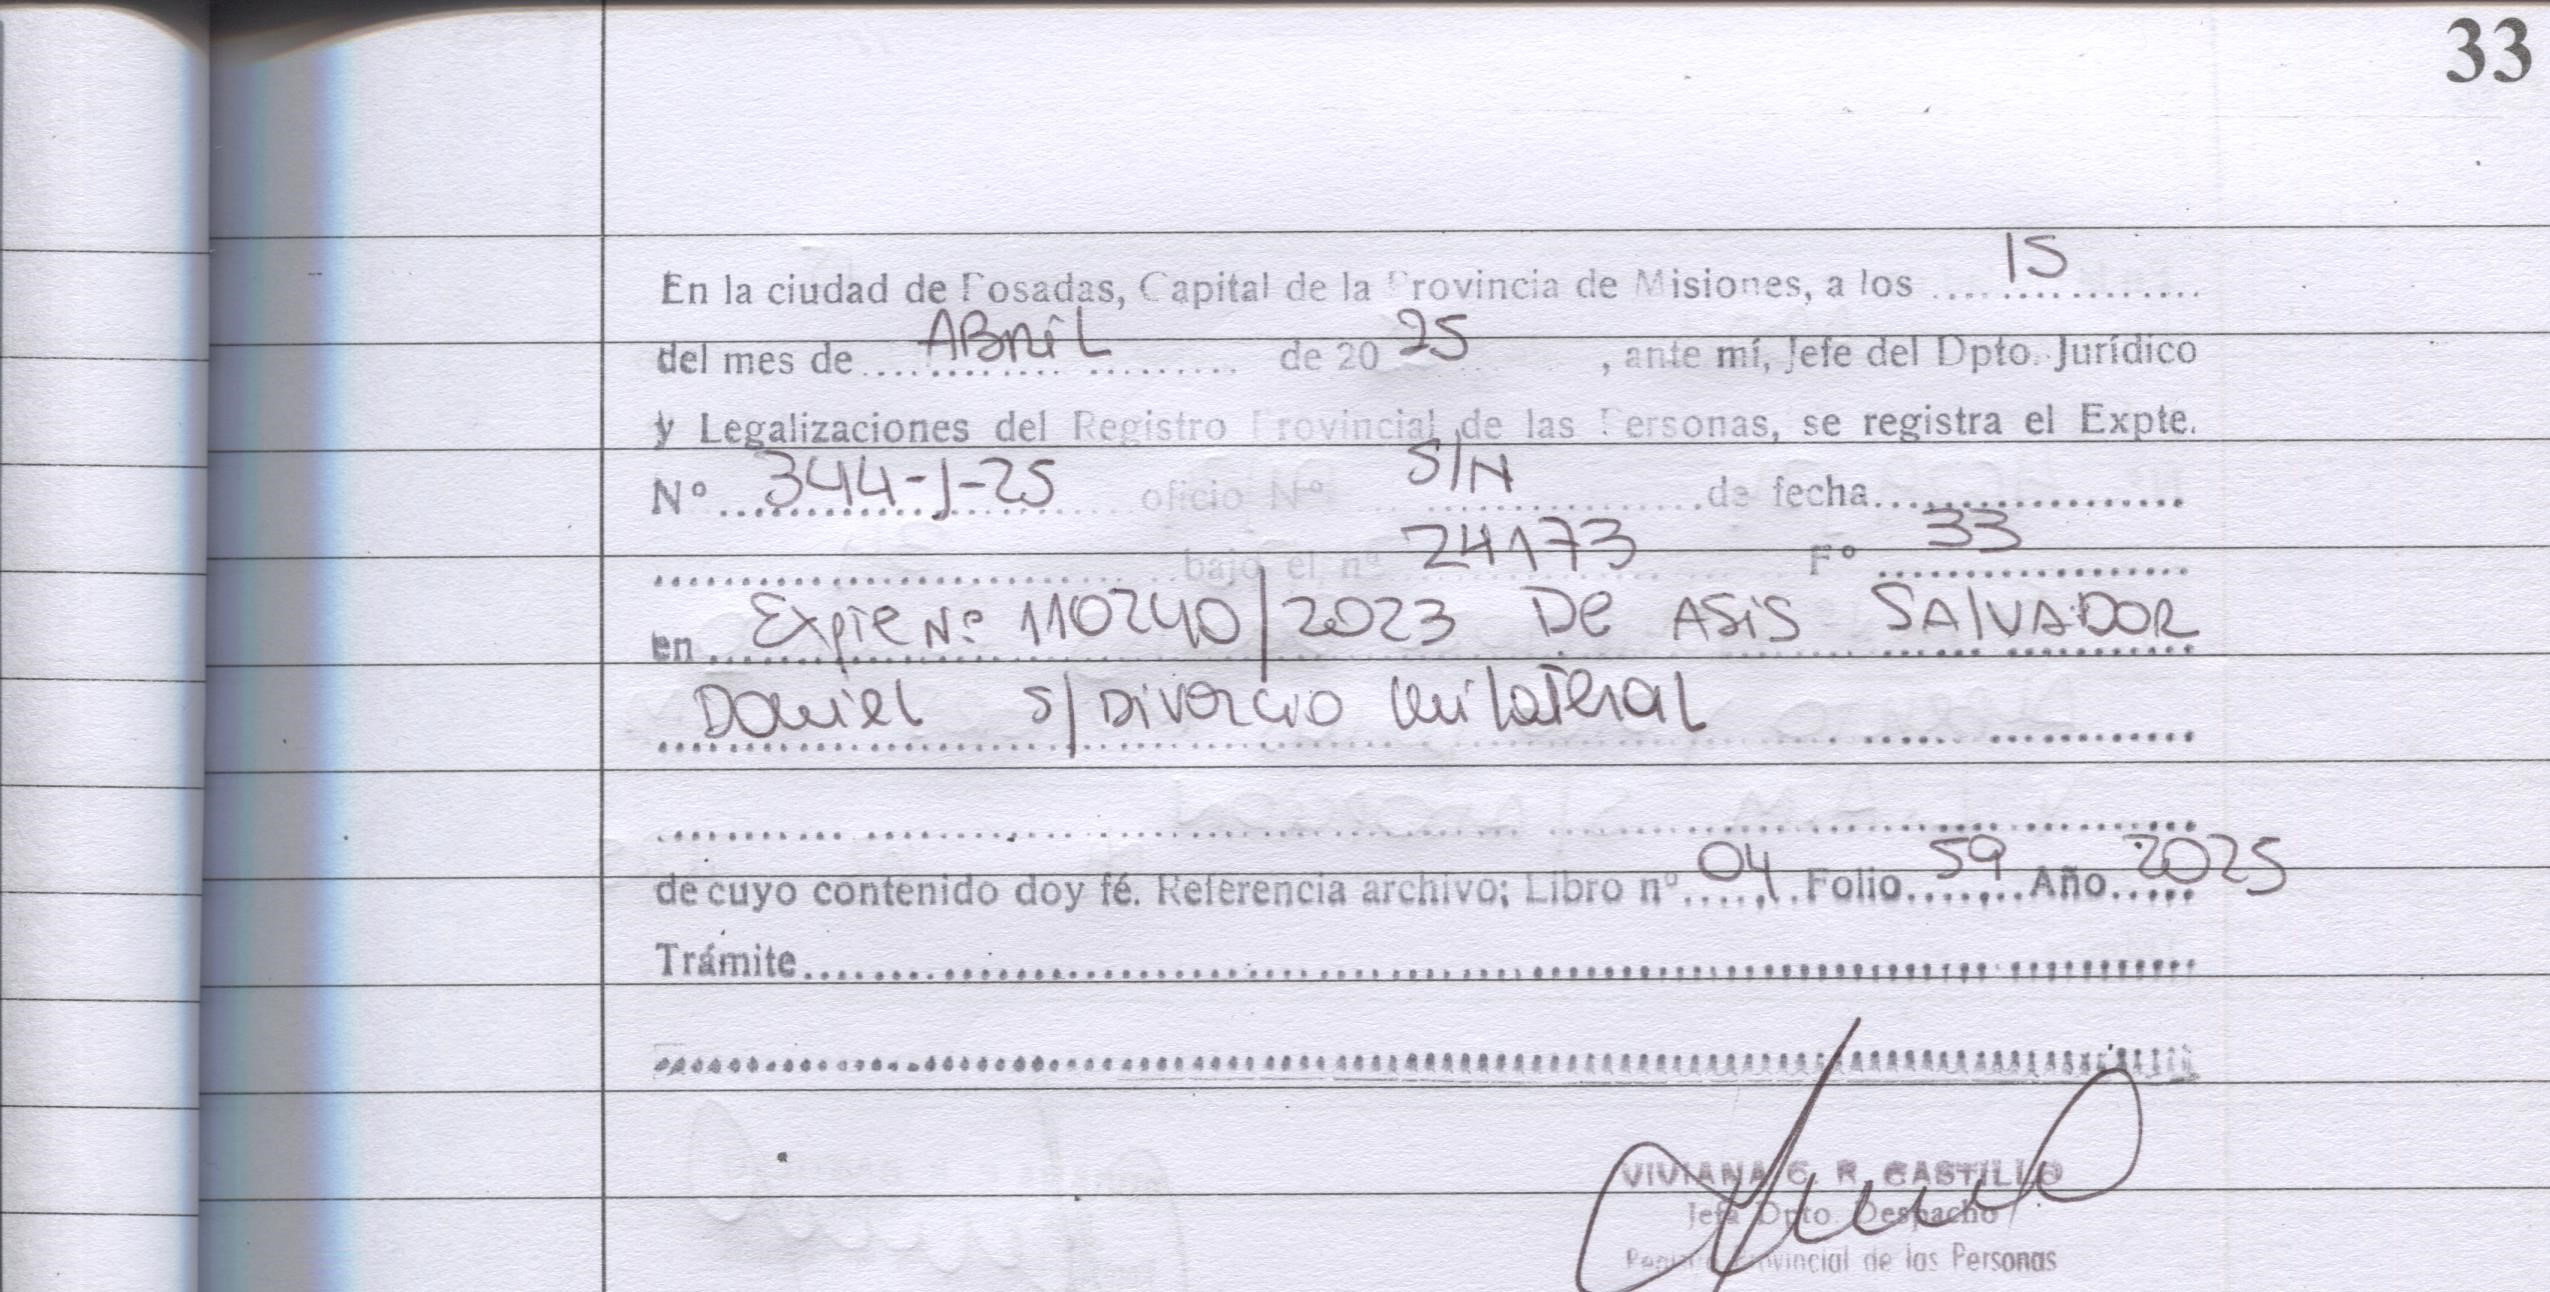 33
En la ciudad de Posadas, Capital de la Provincia de Misiones, a los 15
del mes de ABRIL de 20 25, ante mí, Jefe del Dpto. Jurídico
y Legalizaciones del Registro Provincial de las Personas, se registra el Expte.
Nº 344-J-25 oficio Nº S/N de fecha
bajo el nº 24173 Fº 33
en Expte Nº 110240/2023 De ASIS SALVADOR
Daniel S/ Divorcio Unilateral
de cuyo contenido doy fé. Referencia archivo; Libro nº 04 Folio 59 Año 2025
Trámite
VIVIANA C. R. CASTILLO
Jefa Dpto. Despacho
Registro Provincial de las Personas